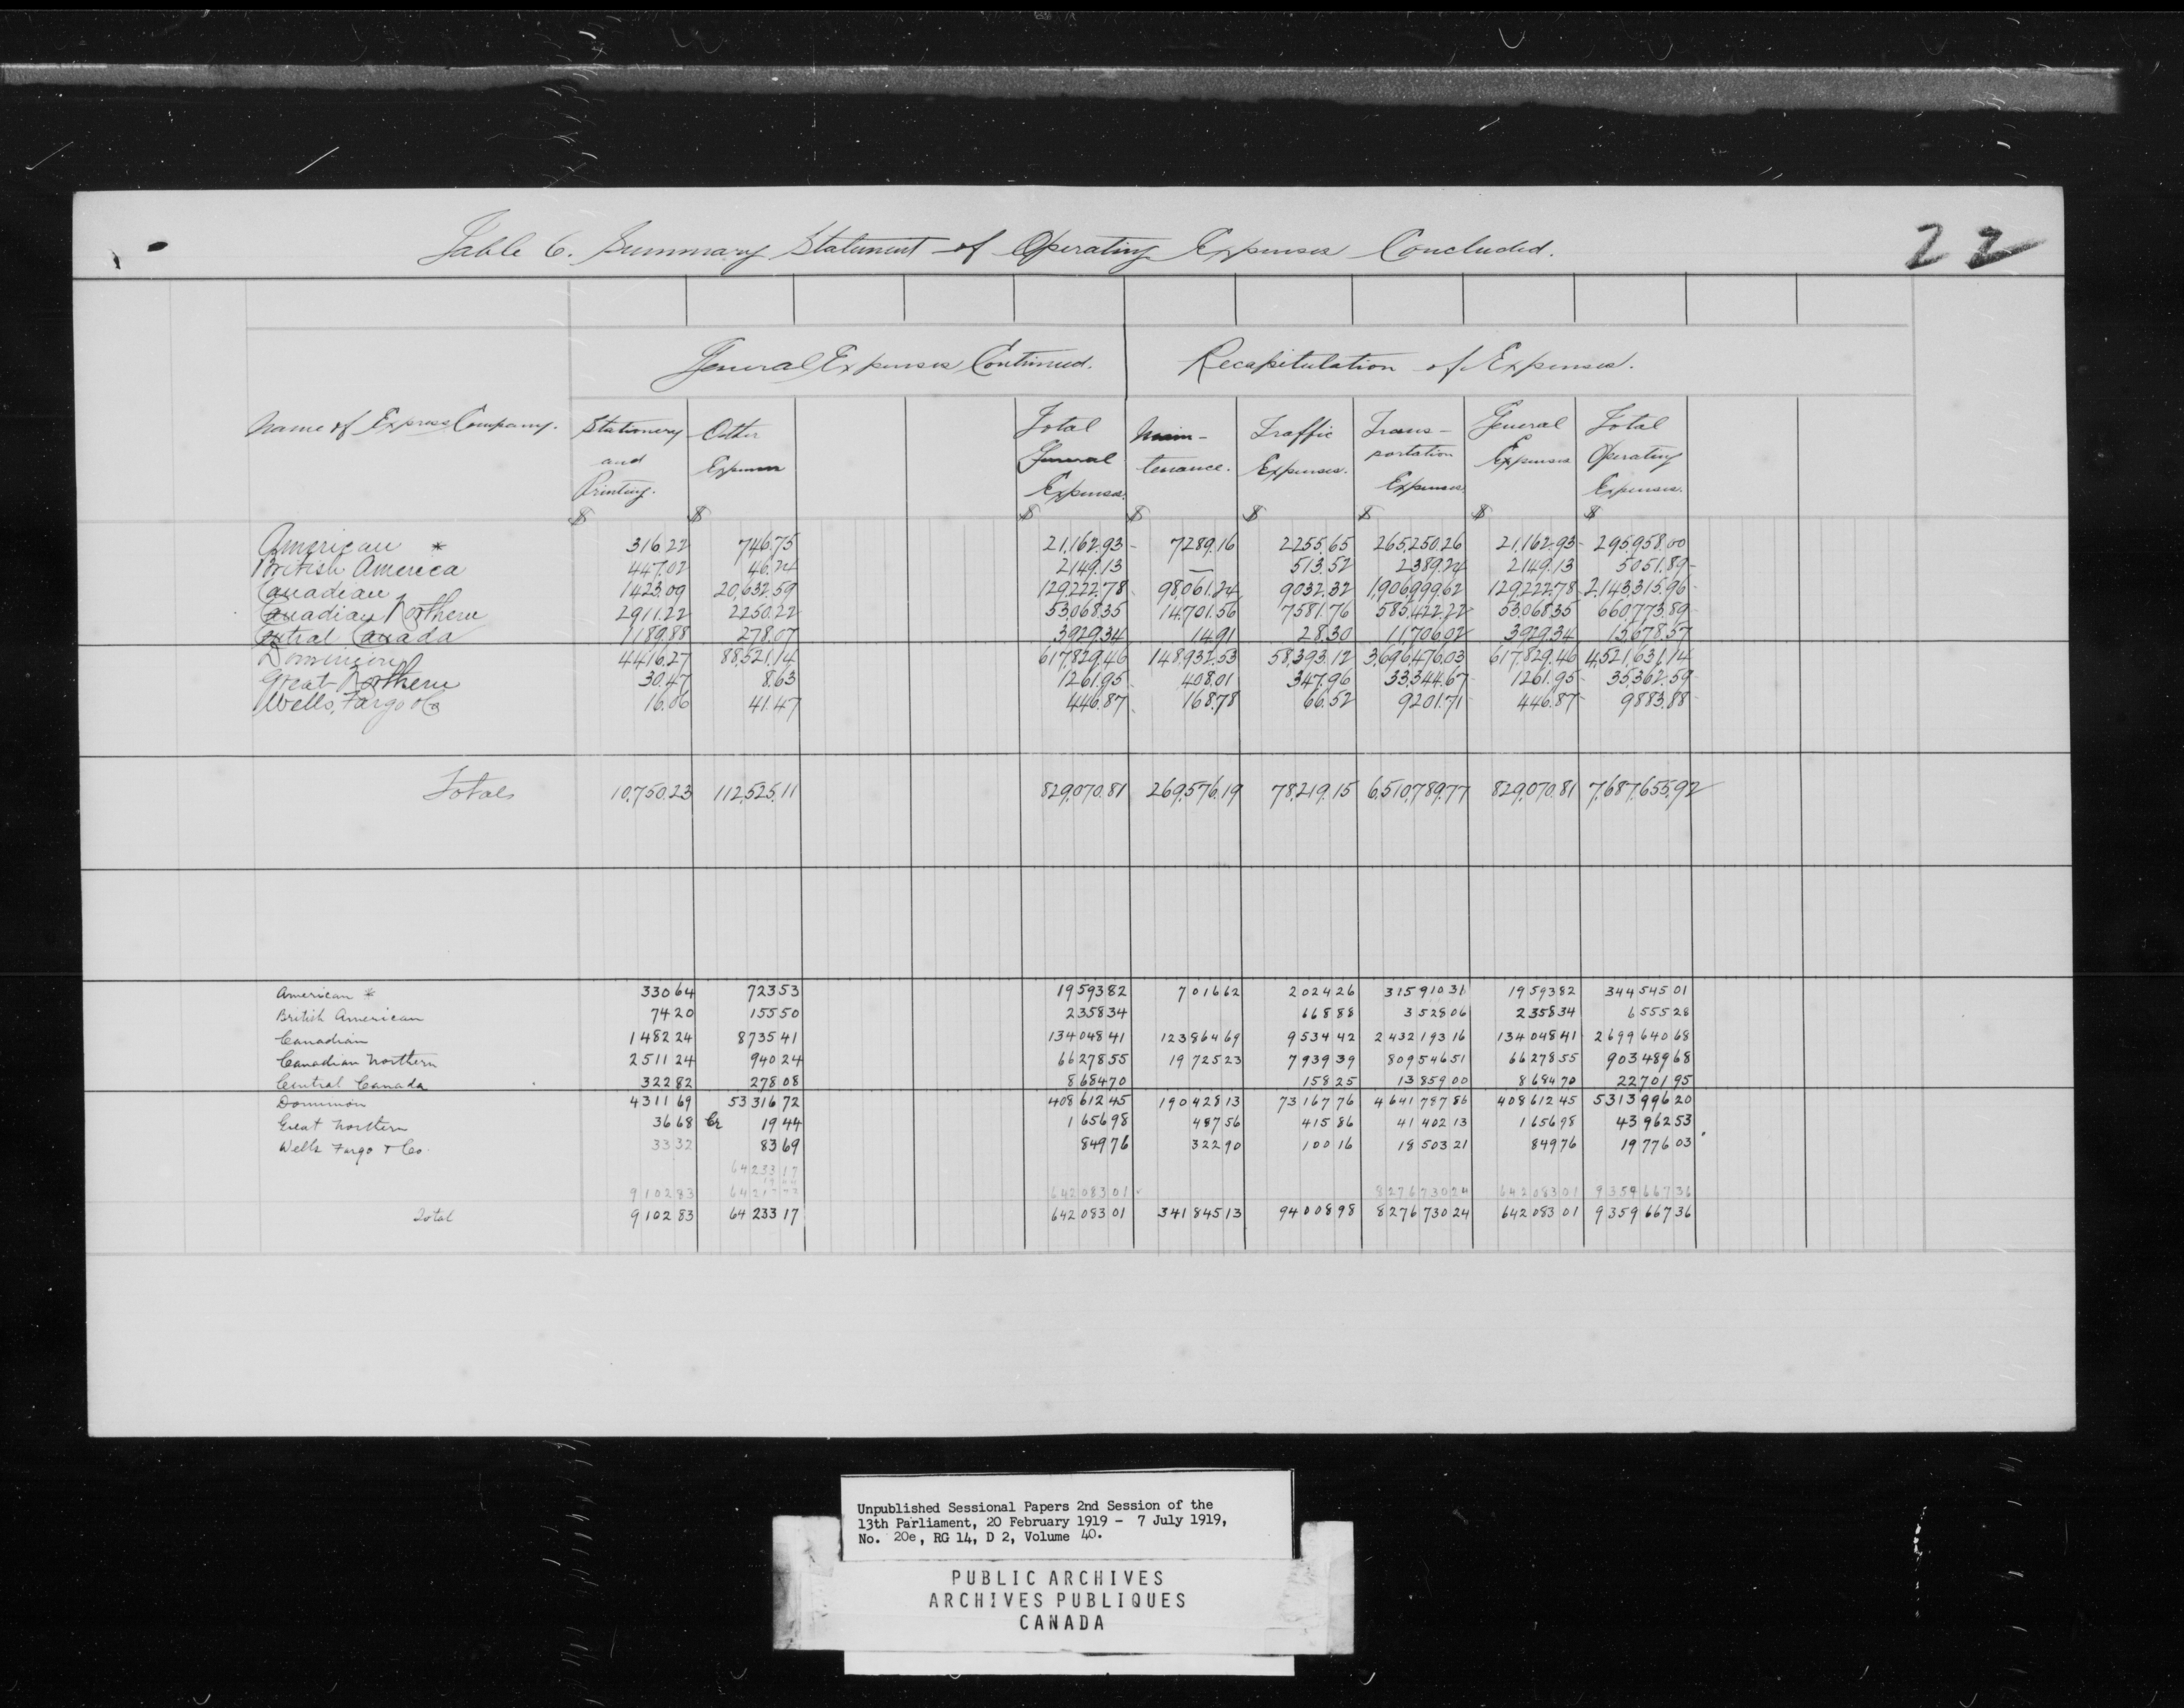 Table 6. Summary Statement of Operating Expenses Concluded.
22
General Expenses Continued. Recapitulation of Expenses.
Name of Express Company. Stationery and Printing. Other Expenses Total General Expenses. Main-tenance. Traffic Expenses. Trans-portation Expenses. General Expenses Total Operating Expenses.
$ $ $ $ $ $ $ $
American * 316.22 746.75 21,162.93 7289.16 2255.65 265,250.26 21,162.93 295,958.00
British America 447.02 46.24 2149.13 — 513.52 2389.24 2149.13 5051.89
Canadian 1423.09 20,632.59 129,222.78 98,061.24 9032.32 1,906,999.62 129,222.78 2,143,315.96
Canadian Northern 2911.22 2250.22 53,068.35 14,701.56 7581.76 585,422.22 53,068.35 660,773.89
Central Canada 1189.88 278.07 3929.34 14.91 28.30 11,706.02 3929.34 15,678.57
Dominion 4416.27 88,521.14 617,829.46 148,932.53 58,393.12 3,696,476.03 617,829.46 4,521,631.14
Great Northern 30.47 8.63 1261.95 408.01 347.96 33,344.67 1261.95 35,362.59
Wells, Fargo & Co 16.06 41.47 446.87 168.78 66.52 9201.71 446.87 9883.88
Totals 10,750.23 112,525.11 829,070.81 269,576.19 78,219.15 6,510,789.77 829,070.81 7,687,655.92
American * 330 64 723 53 19593 82 7016 62 2024 26 315910 31 19593 82 344545 01
British American 74 20 155 50 2358 34 668 88 3528 06 2358 34 6555 28
Canadian 1482 24 8735 41 134048 41 123864 69 9534 42 2432193 16 134048 41 2699640 68
Canadian Northern 2511 24 940 24 66278 55 19725 23 7939 39 809546 51 66278 55 903489 68
Central Canada 322 82 278 08 8684 70 158 25 13859 00 8684 70 22701 95
Dominion 4311 69 53316 72 408612 45 190428 13 73167 76 4641787 86 408612 45 5313996 20
Great Northern 36 68 Cr 19 44 1656 98 487 56 415 86 41402 13 1656 98 43962 53
Wells Fargo & Co. 33 32 83 69 849 76 322 90 100 16 18503 21 849 76 19776 03
64233 17
9102 83 642083 01 8276730 24 642083 01 9359667 36
Total 9102 83 64233 17 642083 01 341845 13 94008 98 8276730 24 642083 01 9359667 36
Unpublished Sessional Papers 2nd Session of the
13th Parliament, 20 February 1919 - 7 July 1919,
No. 20e, RG 14, D 2, Volume 40.
PUBLIC ARCHIVES
ARCHIVES PUBLIQUES
CANADA